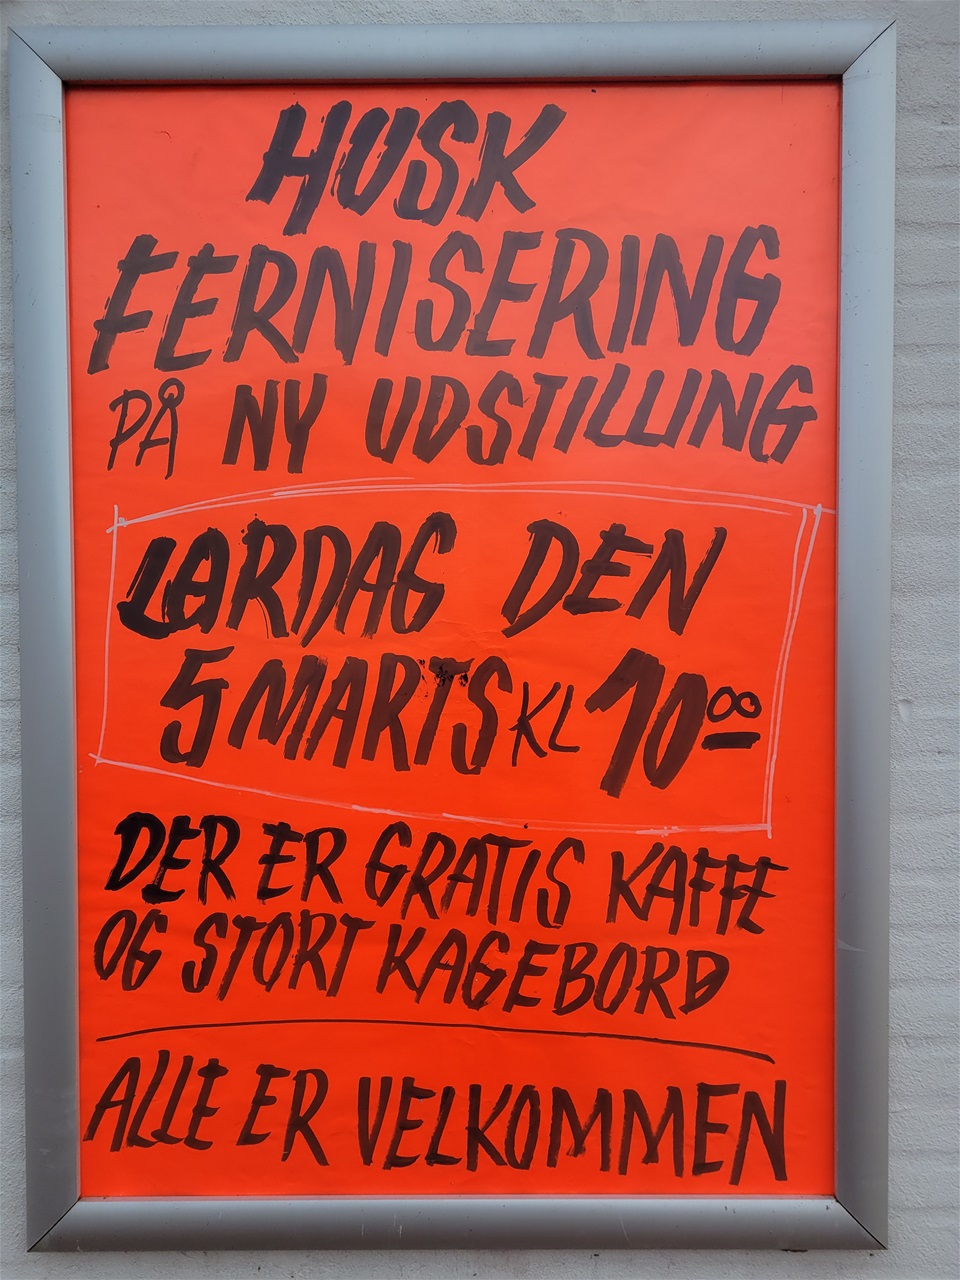 HUSK
FERNISERING
PÅ NY UDSTILLING
LØRDAG DEN
5 MARTS KL 10 00
DER ER GRATIS KAFFE
OG STORT KAGEBORD
ALLE ER VELKOMMEN